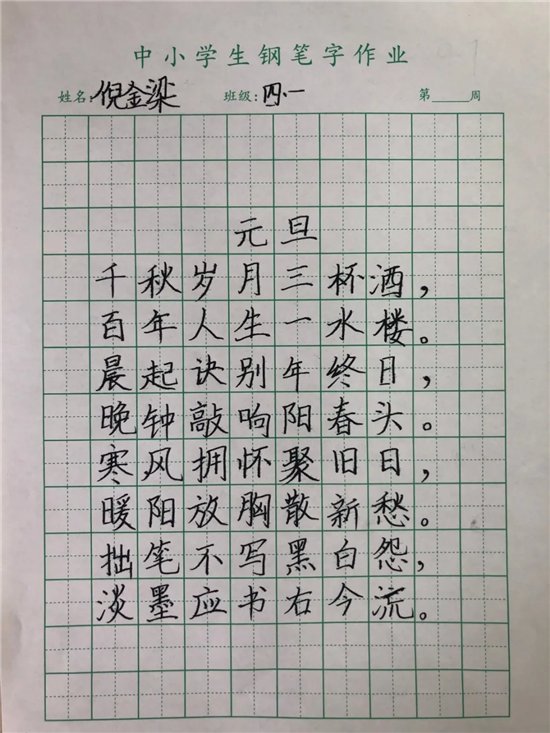 中小学生钢笔字作业
姓名:倪金梁 班级:四.一 第____周
元旦
千秋岁月三杯酒，
百年人生一水楼。
晨起诀别年终日，
晚钟敲响阳春头。
寒风拥怀聚旧日，
暖阳放胸散新愁。
拙笔不写黑白怨，
淡墨应书右今流。